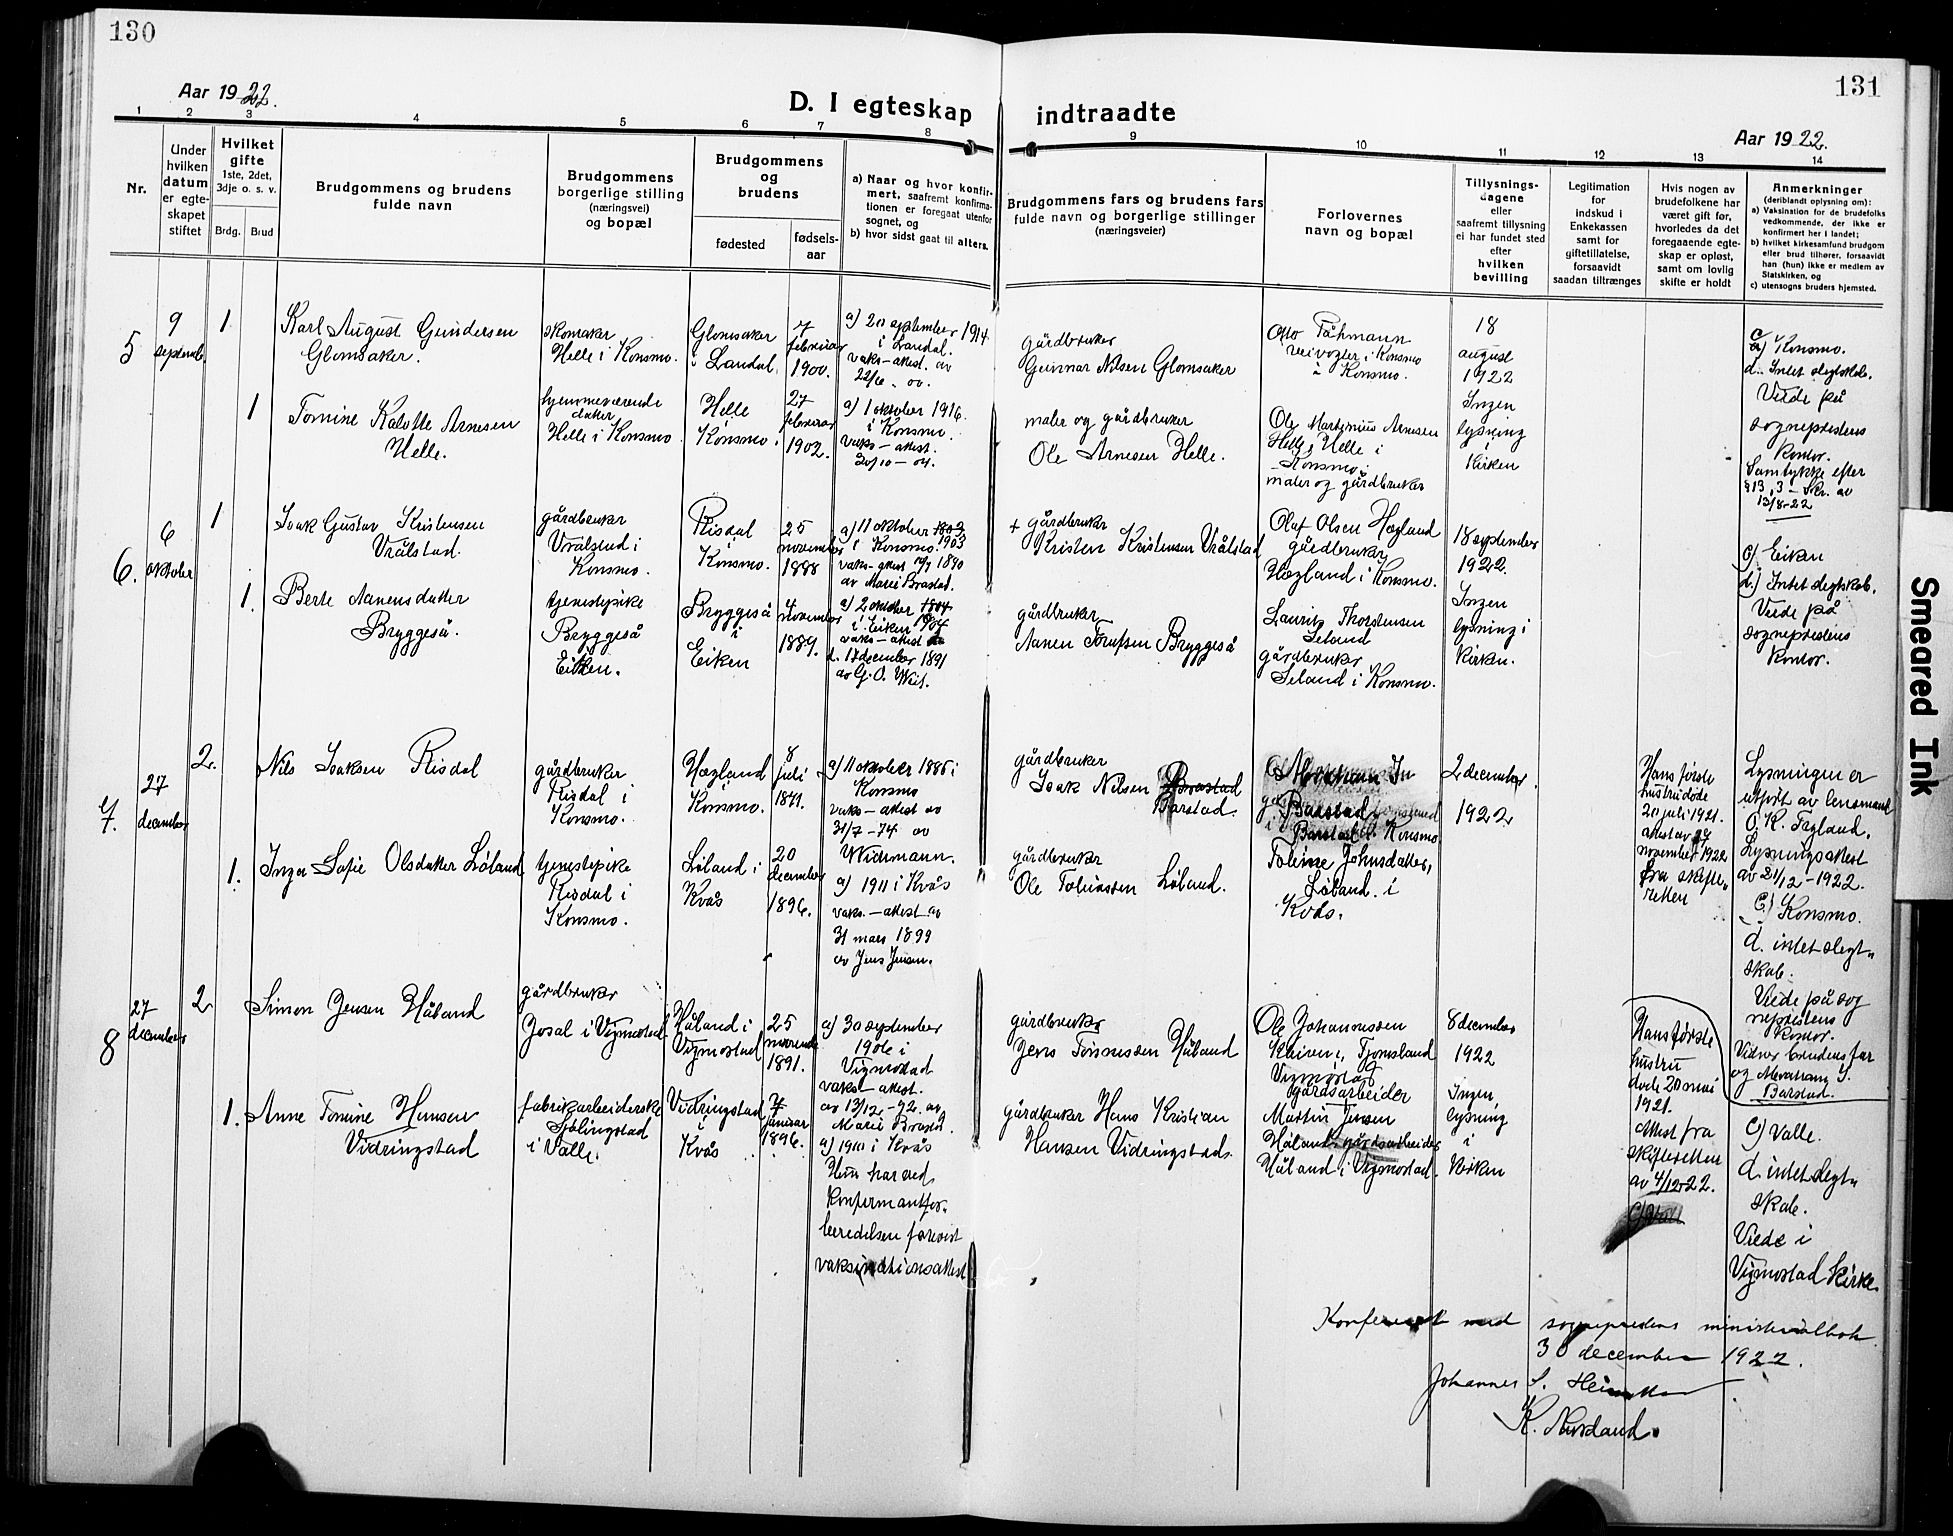 130
131
Aar 1922.
D. I egteskap indtraadte
Aar 1922.
1 2 3 4 5 6 7 8 9 10 11 12 13 14
Nr.
Under
hvilken
datum
er egte-
skapet
stiftet
Hvilket
gifte
1ste, 2det,
3dje o. s. v.
Brdg. Brud
Brudgommens og brudens
fulde navn
Brudgommens
borgerlige stilling
(næringsvei)
og bopæl
Brudgommens
og
brudens
fødested
fødsels-
aar
a) Naar og hvor konfir-
mert, saafremt konfirma-
tionen er foregaat utenfor
sognet, og
b) hvor sidst gaat til alters.
Brudgommens fars og brudens fars
fulde navn og borgerlige stillinger
(næringsveier)
Forlovernes
navn og bopæl
Tillysnings-
dagene
eller
saafremt tillysning
ei har fundet sted
efter
hvilken
bevilling
Legitimation
for
indskud i
Enkekassen
samt for
giftetillatelse,
forsaavidt
saadan tiltrænges
Hvis nogen av
brudefolkene har
været gift før,
hvorledes da det
foregaaende egte-
skap er opløst,
samt om lovlig
skifte er holdt
Anmerkninger
(deriblandt oplysning om):
a) Vaksination for de brudefolks
vedkommende, der ikke er
konfirmert her i landet;
b) hvilket kirkesamfund brudgom
eller brud tilhører, forsaavidt
han (hun) ikke er medlem av
Statskirken, og
c) utensogns bruders hjemsted.
5
9
septemb.
1
Karl August Gundersen
Glomsaker.
skomaker
Helle i Konsmo.
Glomsaker
i Laudal.
7
februar
1900.
a) 20 september 1914
i Laudal.
vaks-attest. av
22/6 - 00.
gårdbruker
Gunnar Nilsen Glomsaker
Otto Påhmann
veivogter i Konsmo
i Konsmo.
18
august
1922
c) Konsmo.
d. Intet slegtskab.
Viede på
sogneprestens
kontor.
Samtykke efter
§ 13, 3 - skr. av
13/8-22
1
Tomine Kalotte Arnesen
Helle.
hjemmeværende
datter
Helle i Konsmo
Helle
Konsmo.
27
februar
1902.
a) 1 oktober 1916.
i Konsmo.
vaks-attest.
20/10 - 04.
maler og gårdbruker
Ole Arnesen Helle.
Ole Martinius Arnesen
Helle, Helle i
Konsmo.
maler og gårdbruker
Ingen
lysning
kirken
6.
6
oktober
1
Isak Gustav Kristensen
Vrålstad.
gårdbruker
Vrålstad i
Konsmo.
Risdal
i
Konsmo.
25
november
1888
a) 11 oktober 1803
i Konsmo. 1903
vaks-attest 19/9 1890
av Marie Brastad.
+ gårdbruker
Kristen Kristensen Vrålstad
Olaf Olsen Hægland
gårdbruker,
Hægland i Konsmo.
18 september
1922.
c) Eiken
d.) Intet slegtskab.
Viede på
sogneprestens
kontor.
1.
Berte Aanensdatter
Bryggeså.
tjenestepike
Bryggeså
Eiken.
Bryggeså
i
Eiken
4
november
1889.
a) 2 oktober 1804
i Eiken 1904
vaks-attest
d. 17 december 1891
av G. O. Weit.
gårdbruker
Aanen Tomssen Bryggeså
Lauritz Thorstensen
Seland
gårdbruker
Seland i Konsmo.
Ingen
lysning i
kirken.
7.
27
december
2.
Nils Isaksen Risdal
gårdbruker
Risdal i
Konsmo.
Hægland
i
Konsmo.
8
juli
1871.
a) 11 oktober 1885 i
Konsmo
vaks-attest av
31/7-74 av
Wichmann.
gårdbruker
Isak Nilsen Brastad
Barstad.
Abraham
Barstad,
i Barstad i Konsmo
2 december
1922
Hans første
hustru døde
20 juli 1921.
attest av 27
november 1922
fra skifte„
retten
Lysningen er
utført av lensmand
O. K. Tryland.
Lysningsattest
av 21/12-1922.
c) Konsmo.
d. intet slegt„
skab.
Viede på sog
neprestens
kontor.
Vidner brudens far
og Abraham I.
Barstad.
1.
Inga Sofie Olsdatter Løland
tjenestepike
Risdal i
Konsmo.
Løland i
Kvås
20
december
1896.
a) 1911 i Kvås
vaks.-attest av
31 mars 1899
av Jens Jensen.
gårdbruker
Ole Tobiassen Løland.
Toline Johnsdatter,
Løland. i
Kvås.
8
27
december
2
Simon Jensen Håland
gårdbruker
Josal i Vigmostad
Håland i
Vigmostad
25
november
1891.
a) 30 september
1906 i
Vigmostad
vaks-attest.
av 13/12-92. av
Marie Brastad.
gårdbruker
Jens Tønnessen Håland
Ole Johannessen
Kleiven, Tjomsland
Vigmostad
gårdsarbeider
8 december
1922
Hans første
hustru
døde 20 mai
1921.
attest fra
skifteretten
av 4/12-22.
c) Valle.
d. intet slegt„
skab.
Viede i
Vigmostad kirke.
1.
Anne Tomine Hansen
Vidringstad
fabrikarbeiderske
i Valle.
Vidringstad
i
Kvås
7
januar
1896.
a) 1910 i Kvås
Hun har ved
konfirmantfor„
beredelsen forevist
vaksinationsattest
gårdbruker Hans Kristian
Hansen Vidringstad.
Martin Jensen
Håland, gårdsarbeider
Håland i Vigmostad.
Ingen
lysning
i
kirken
Konferert med sogneprestens ministerialbok
30 december 1922.
Johannes S.
Smeared Ink